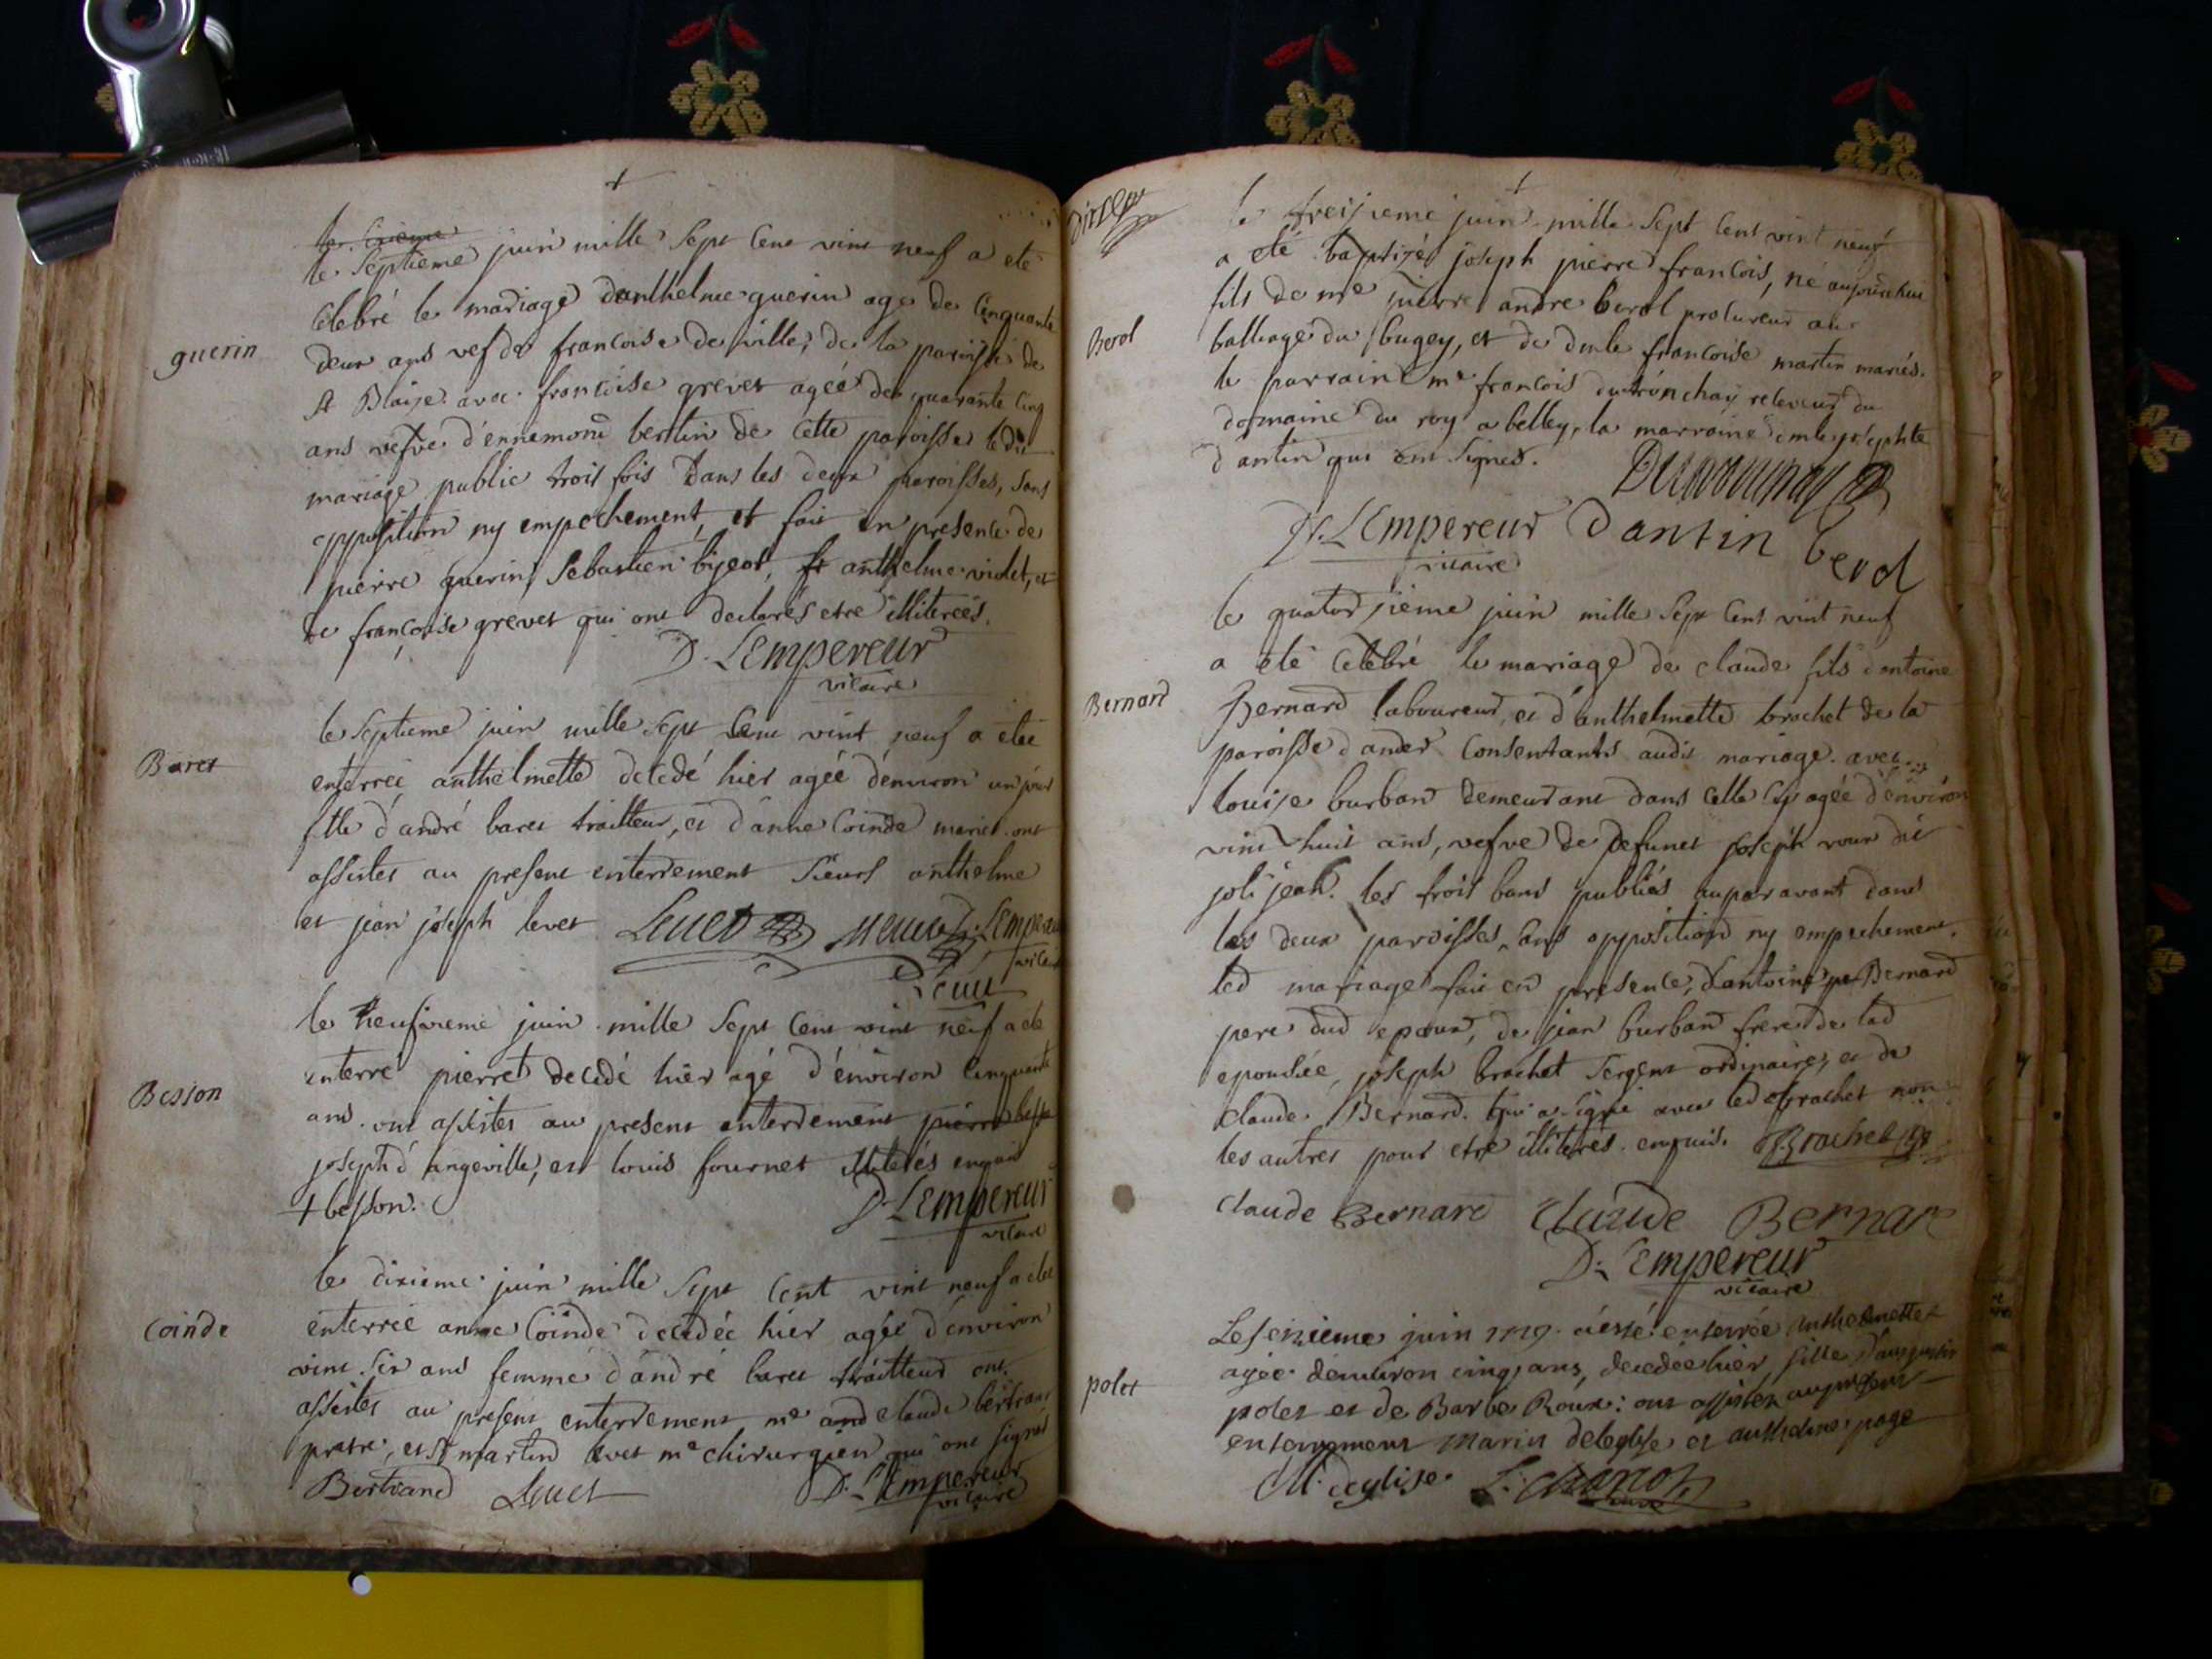 le sixieme
le septieme juin mille sept cent vint neuf a eté
guerin
celebré le mariage danthelme guerin agé de cinquante
deux ans vef de francoise de ville, de la paroisse de
St Blaise avec francoise grevet agée de quarante cinq
ans vefve d'ennemond bertin de cette paroisse ledit
mariage publié trois fois dans les deux paroisses, sans
opposition ny empechement, et fait en presence de
pierre guerin, Sebastien bijeot, anthelme violet, et
de françoise grevet qui ont declarés etre illiterées.
D. LEmpereur
vicaire
Baret
le septieme juin mille sept cent vint neuf a etée
enterrée anthelmette decedé hier agée d'environ un jour
fille d'andré baret traitteur, et d'anne Coinde mariés ont
assistes au present enterrement sieurs anthelme
et jean joseph levet Levet D. LEmpereur
vicaire
Besson
le neufvieme juin mille sept cent vint neuf a eté
enterré pierre decedé hier agé d'environ cinquante
ans. ont assistes au present enterrement
joseph d'angeville, et louis fournet illiterés enquis
+ besson.
D. LEmpereur
vicaire
Coinde
le dixieme juin mille sept cent vint neuf a eté
enterrée anne Coinde decedée hier agée d'environ
vint six ans femme d'andré baret traitteur ont
assistes au present enterrement me claude bertrand
pretre, et Sr martin levet me chirurgien qui ont signés
Bertrand Levet D. LEmpereur
vicaire
le treisieme juin mille sept cent vint neuf
a eté baptizé joseph pierre francois, né aujourdhui
Berol
fils de me pierre andre berol procureur au
balliage du bugey, et de dmle francoise martin mariés.
le parrain me francois dutronchay receveur du
domaine du roy a belley, la marraine dmle josephte
d'antin qui ont signés.
D. LEmpereur Dantin berol
vicaire
le quatorsieme juin mille sept cent vint neuf
a eté celebré le mariage de claude fils d'antoine
Bernard
Bernard laboureur, et d'anthelmette brochet de la
paroisse d'ander consentants audit mariage avec
louise burband demeurant dans cette agée d'environ
vint huit ans, vefve de defunct joseph roux dit
joli jean. les trois bans publiés auparavant dans
les deux paroisses, sans opposition ny empechement.
led mariage fait en presence, d'antoine Bernard
pere dud epoux, de jean burband frere de lad
epousée, joseph brachet sergent ordinaire, et de
claude Bernard. qui a signé avec led brachet non
les autres pour etre illiterés enquis. Brachet
claude Bernard claude Bernard
D. LEmpereur
vicaire
Le seizieme juin 1729. a esté enterrée anthelmette
polet
agée denviron cinq ans, decedée hier, fille d'augustin
polet et de Barbe Roux: ont assistez au present
enterrement Marin deleglise et anthelme page
M. deglise.